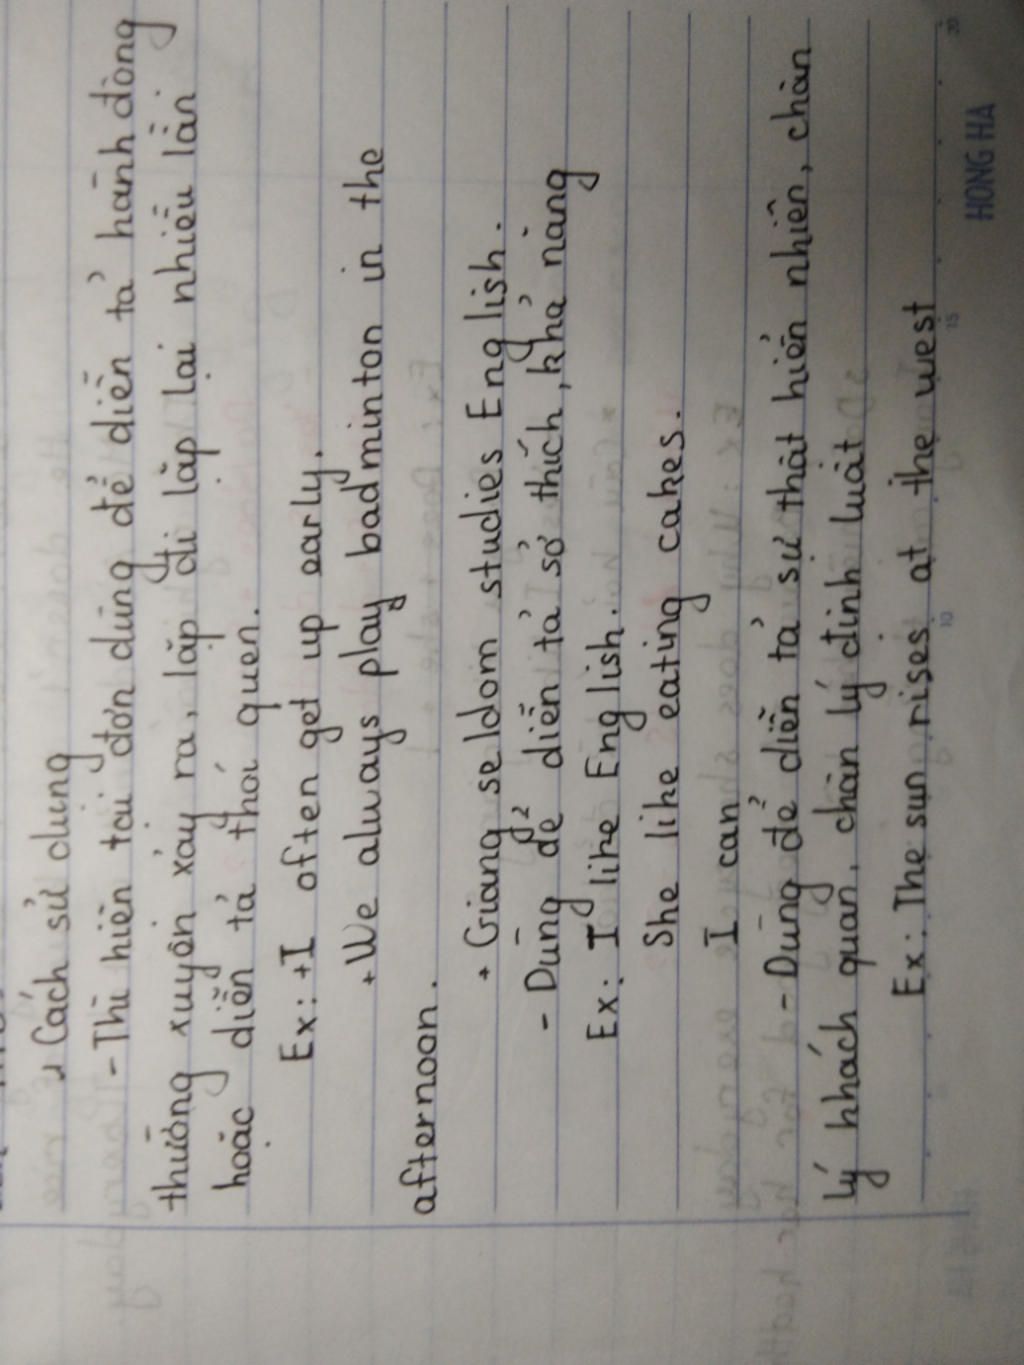 2 Cách sử dụng
- Thì hiện tại đơn dùng để diễn tả hành động
thường xuyên xảy ra, lặp đi lặp lại nhiều lần
hoặc diễn tả thói quen.
Ex: + I often get up early.
+ We always play badminton in the
afternoon.
+ Giang seldom studies English.
- Dùng để diễn tả sở thích, khả năng
Ex: I like English.
She like eating cakes.
I can
- Dùng để diễn tả sự thật hiển nhiên, chân
lý khách quan, chân lý định luật
Ex: The sun rises at the west
HONG HA